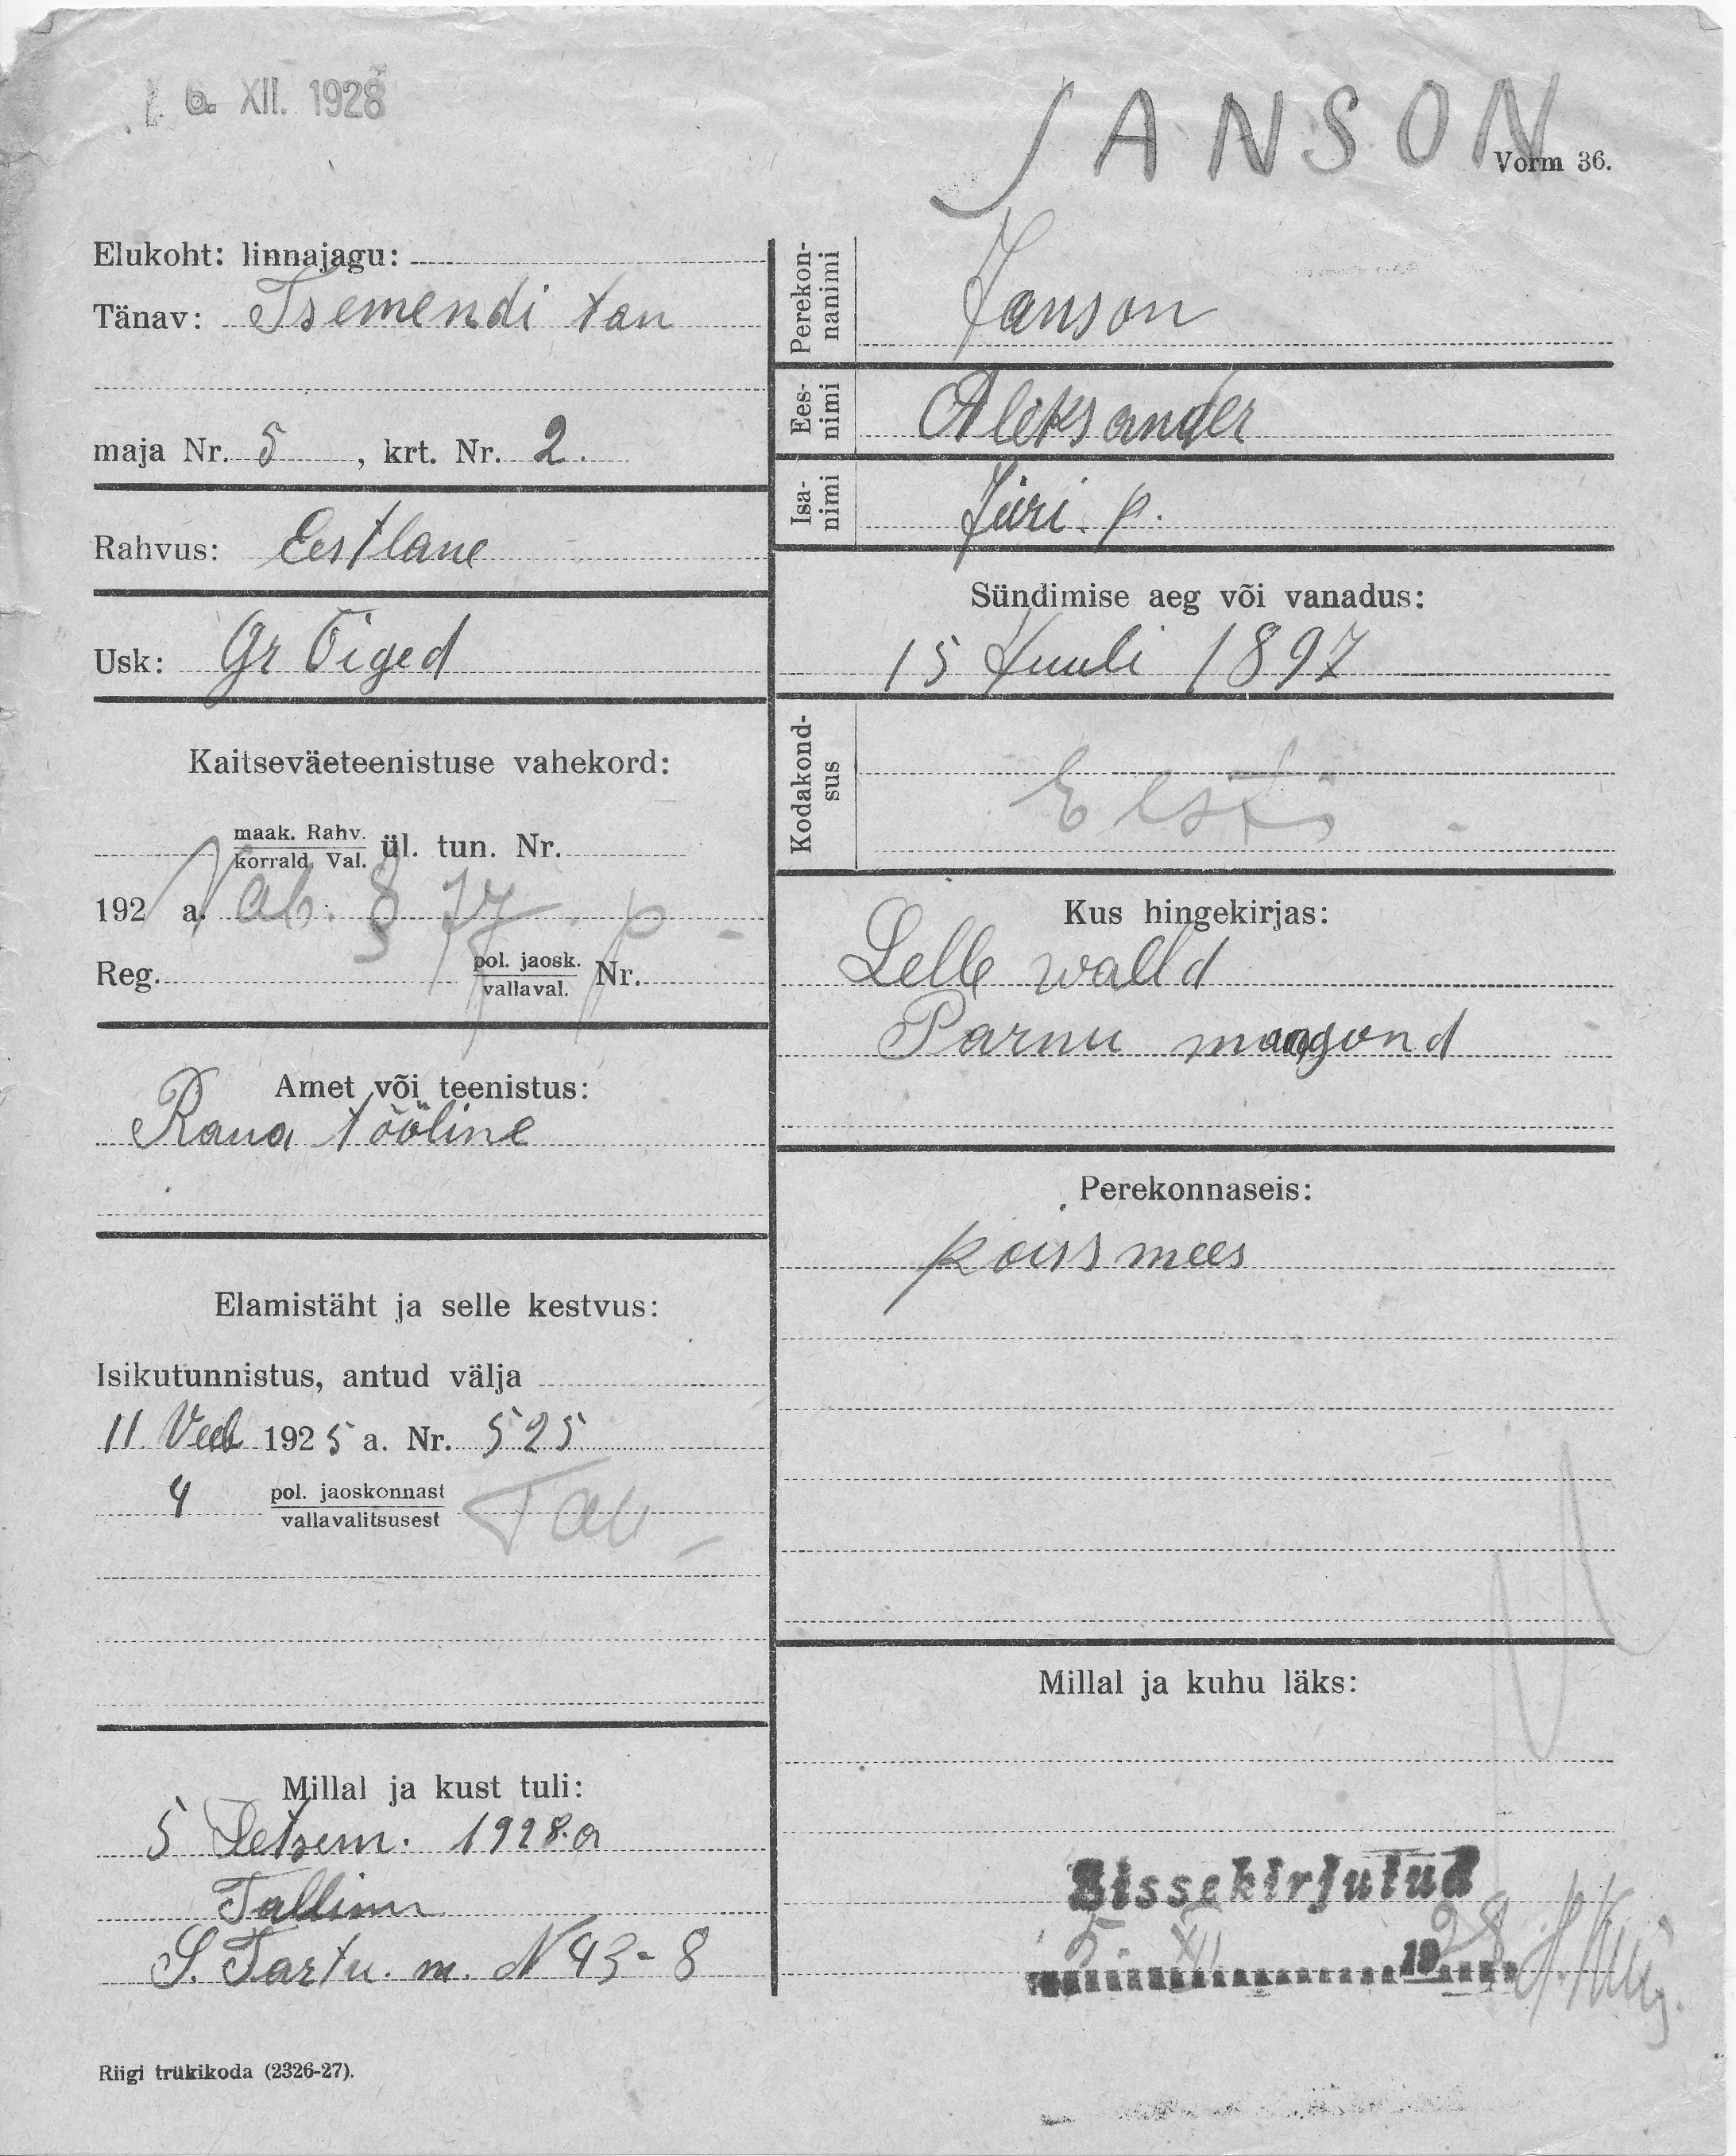 6. XII. 1928
JANSON
Vorm 36.
Elukoht: linnajagu:
Tänav: Tsemendi tän
maja Nr. 5, krt. Nr. 2.
Rahvus: Eestlane
Usk: Gr Õiged
Kaitseväeteenistuse vahekord:
maak. Rahv.
korrald. Val. ül. tun. Nr.
192 a. Vab. § 77 p
Reg. pol. jaosk.
vallaval. Nr.
Amet või teenistus:
Raua tööline
Elamistäht ja selle kestvus:
Isikutunnistus, antud välja
11 Veeb 1925 a. Nr. 525
4 pol. jaoskonnast
vallavalitsusest Tal
Millal ja kust tuli:
5 Detsem. 1928.a
Tallinn
S. Tartu. m. N 43-8
Riigi trükikoda (2326-27).
Perekon-
nanimi
Janson
Ees-
nimi
Aleksander
Isa-
nimi
Jüri. p.
Sündimise aeg või vanadus:
15 Juuli 1897
Kodakond-
sus
Eesti
Kus hingekirjas:
Lelle walld
Pärnu maagond
Perekonnaseis:
poissmees
Millal ja kuhu läks:
Sissekirjutud
5. XII 1928